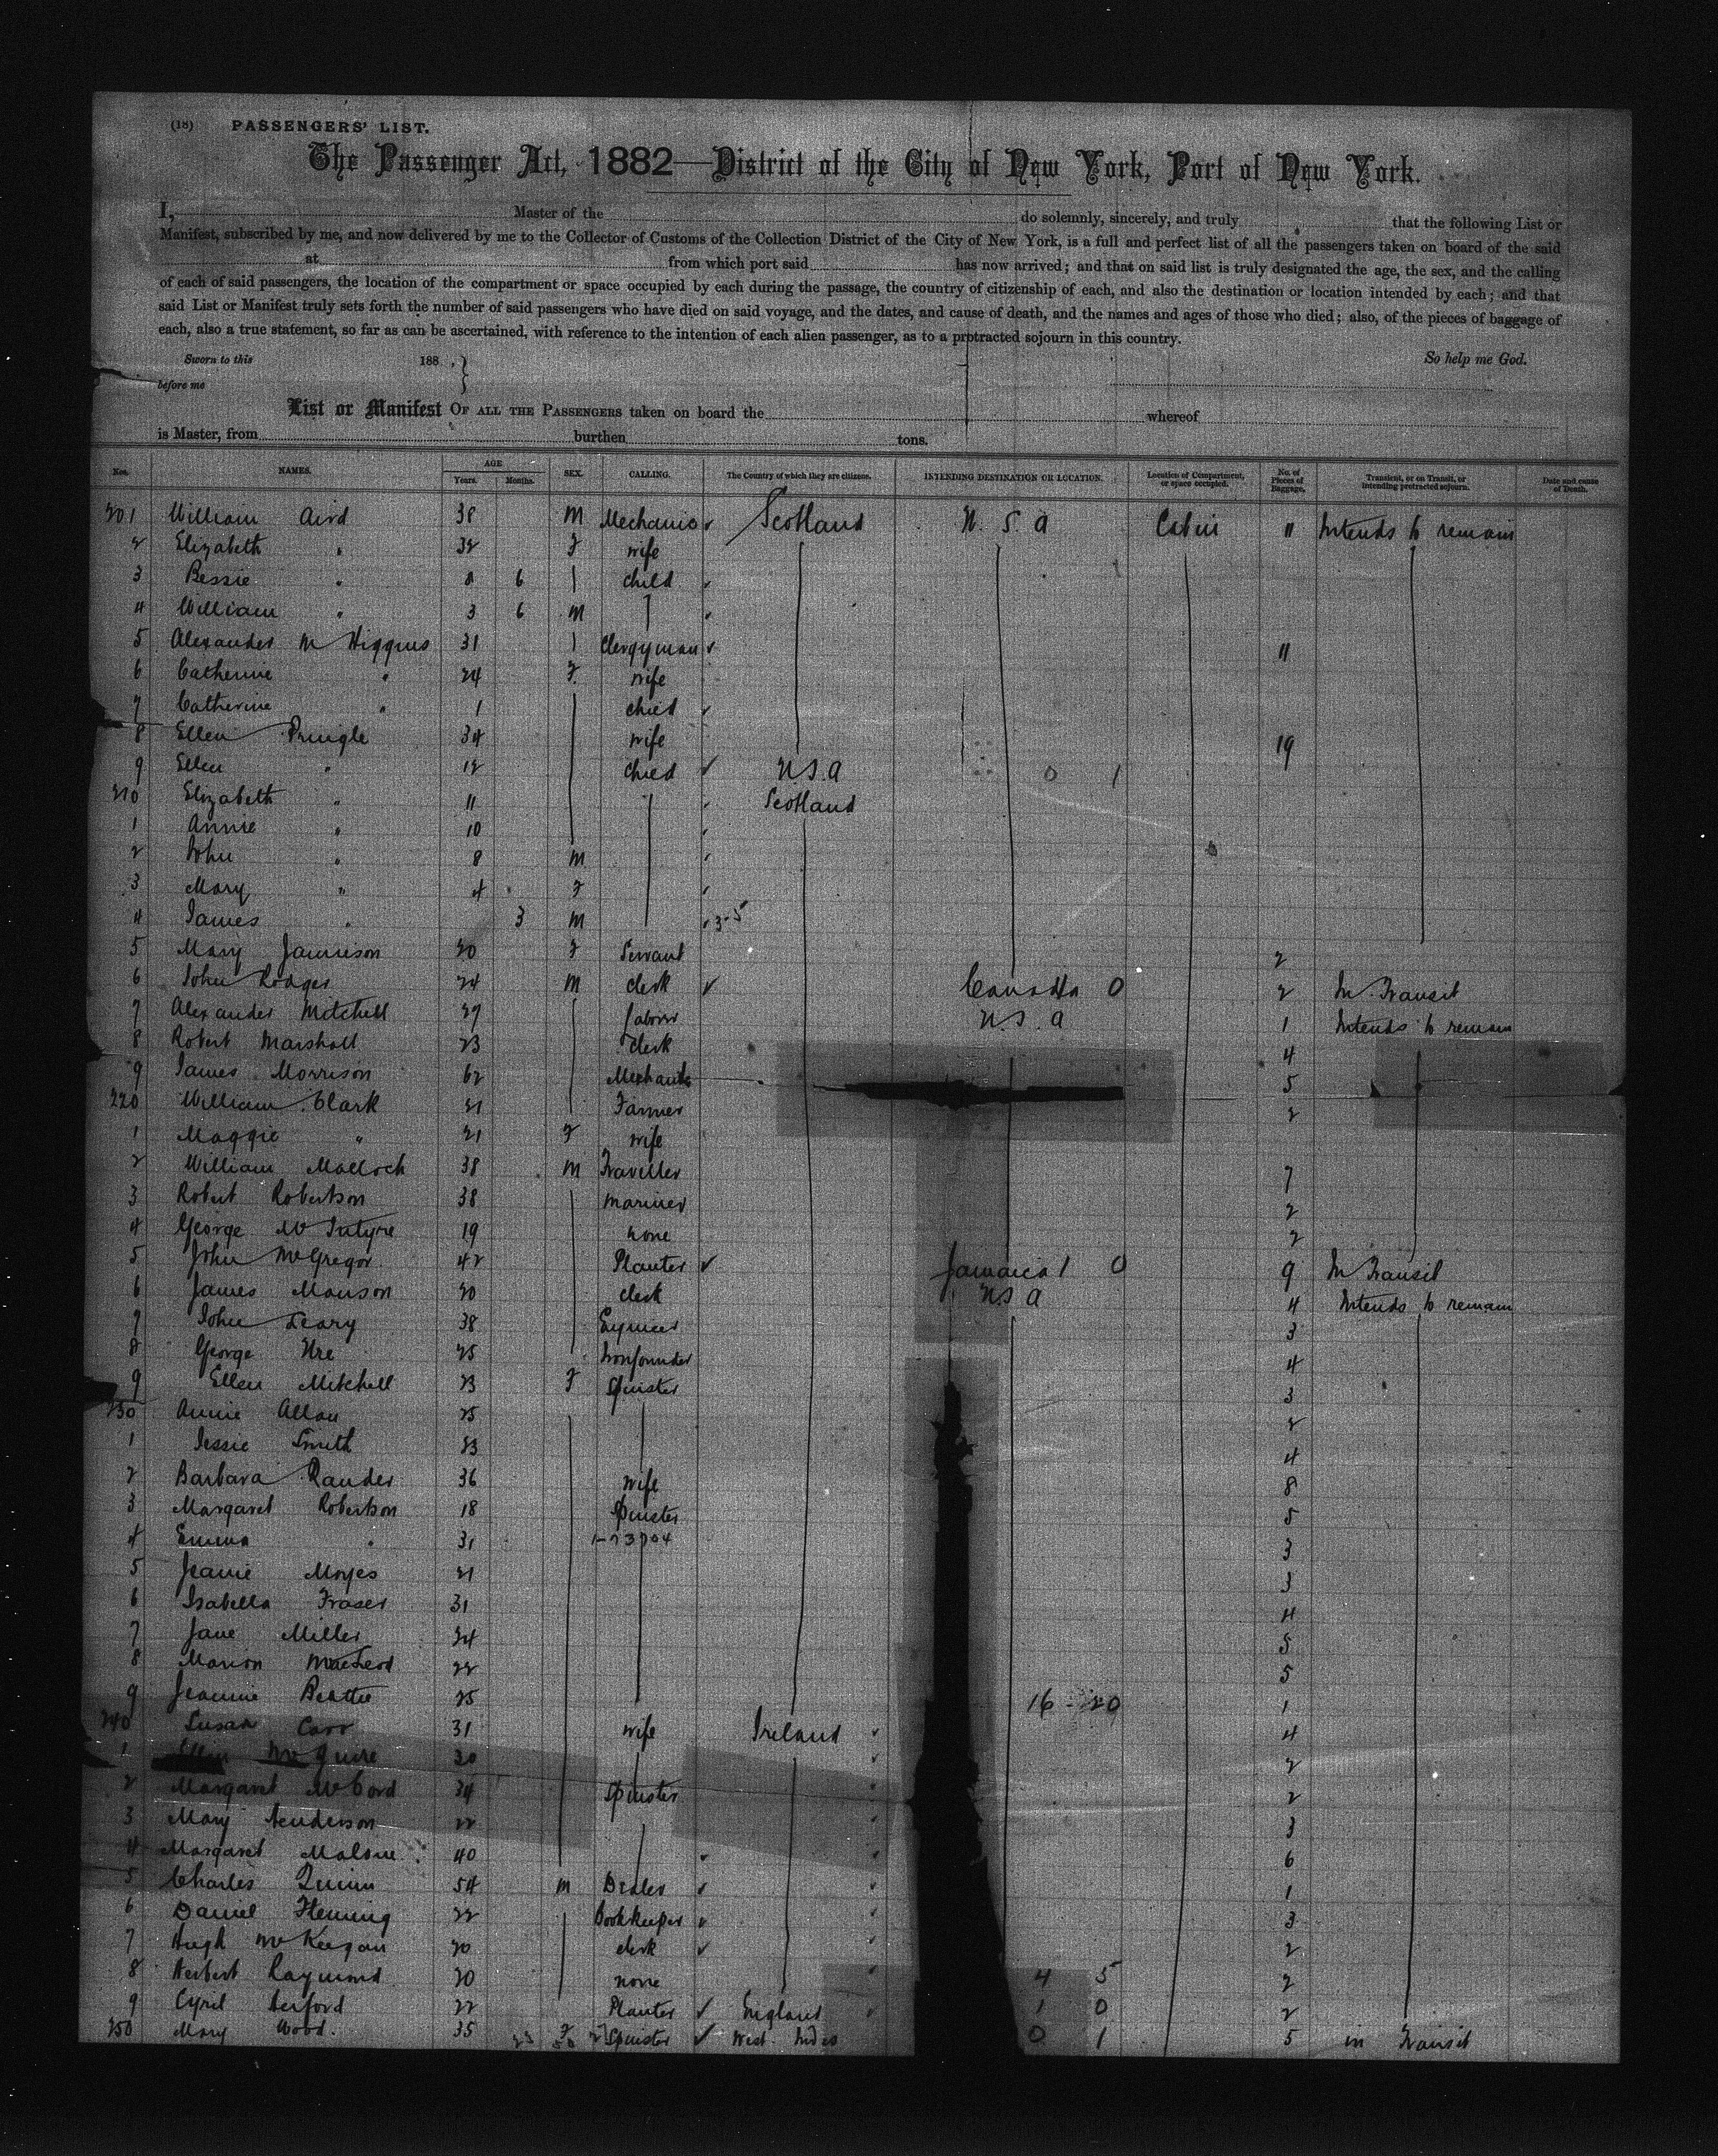 (18) PASSENGERS' LIST.
The Passenger Act, 1882—District of the City of New York, Port of New York.
I, Master of the do solemnly, sincerely, and truly that the following List or
Manifest, subscribed by me, and now delivered by me to the Collector of Customs of the Collection District of the City of New York, is a full and perfect list of all the passengers taken on board of the said
at from which port said has now arrived; and that on said list is truly designated the age, the sex, and the calling
of each of said passengers, the location of the compartment or space occupied by each during the passage, the country of citizenship of each, and also the destination or location intended by each; and that
said List or Manifest truly sets forth the number of said passengers who have died on said voyage, and the dates, and cause of death, and the names and ages of those who died; also, of the pieces of baggage of
each, also a true statement, so far as can be ascertained, with reference to the intention of each alien passenger, as to a protracted sojourn in this country.
Sworn to this 188 , } So help me God.
before me
List or Manifest OF ALL THE PASSENGERS taken on board the whereof
is Master, from burthen tons.
Nos. NAMES. AGE Years. Months. SEX. CALLING. The Country of which they are citizens. INTENDING DESTINATION OR LOCATION. Location of Compartment, or space occupied. No. of Pieces of Baggage. Transient, or on Transit, or intending protracted sojourn. Date and cause of Death.
201 William Aird 38 M Mechanic ✓ Scotland U. S. A Cabin 11 Intends to remain
2 Elizabeth " 32 F wife
3 Bessie " 6 child
4 William " 3 6 M
5 Alexander M Higgins 31 Clergyman ✓ 11
6 Catherine " 24 F. wife
7 Catherine " 1 child ✓
8 Ellen Pringle 34 wife 19
9 Ellen " 12 child ✓ U.S.A 0 1
210 Elizabeth " 11 Scotland
1 Annie " 10
2 John " 8 M
3 Mary " 4 F
4 James " 3 M 3-5
5 Mary Jamieson 20 F Servant 2
6 John Rodger 24 M clerk ✓ Canada 0 2 In Transit
7 Alexander Mitchell 27 labor U.S.A 1 Intends to remain
8 Robert Marshall 23 clerk 4
9 James Morrison 62 5
220 William Clark 21 Farmer 2
1 Maggie " 21 F wife
2 William Malloch 38 M Traveller 7
3 Robert Robertson 38 mariner 2
4 George McIntyre 19 none 2
5 John McGregor 42 Planter ✓ Jamaica 1 0 9 In Transit
6 James Manson 20 clerk U S A 4 Intends to remain
7 John Leary 38 Engineer 3
8 George Ure 25 Ironfounder 4
9 Ellen Mitchell 23 F Spinster 3
230 Annie Allan 25 2
1 Jessie Smith 23 4
2 Barbara Rander 36 wife 8
3 Margaret Robertson 18 Spinster 5
4 Emma " 31 3
5 Jeanie Moyes 21 3
6 Isabella Fraser 31 4
7 Jane Miller 24 5
8 Marion MacLeod 22 5
9 Jeannie Beattie 25 16 - 20 1
240 Susan Carr 31 wife Ireland 4
1 Ellen McGuire 30 2
2 Margaret McCord 34 Spinster 2
3 Mary Henderson 22 3
4 Margaret Malone 40 6
5 Charles Quinn 54 M Dealer ✓ 1
6 Daniel Fleming 22 Bookkeeper ✓ 3
7 Hugh McKeegan 20 clerk ✓ 2
8 Herbert Raymond 20 none 4 5 2
9 Cyril 22 Planter ✓ England 1 0 2
250 Mary Wood. 35 F Spinster ✓ West Indies 0 1 5 in Transit